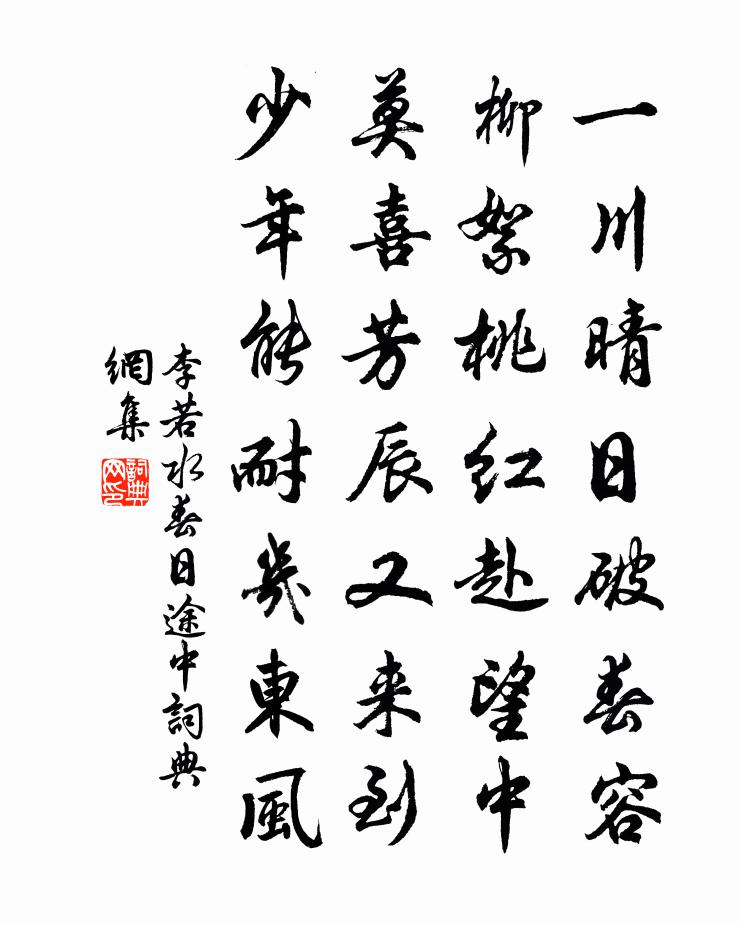 一川晴日破春容
柳絮桃红赴望中
莫喜芳辰又来到
少年能耐幾東風
李若水春日途中詞典
網集
詞典网印